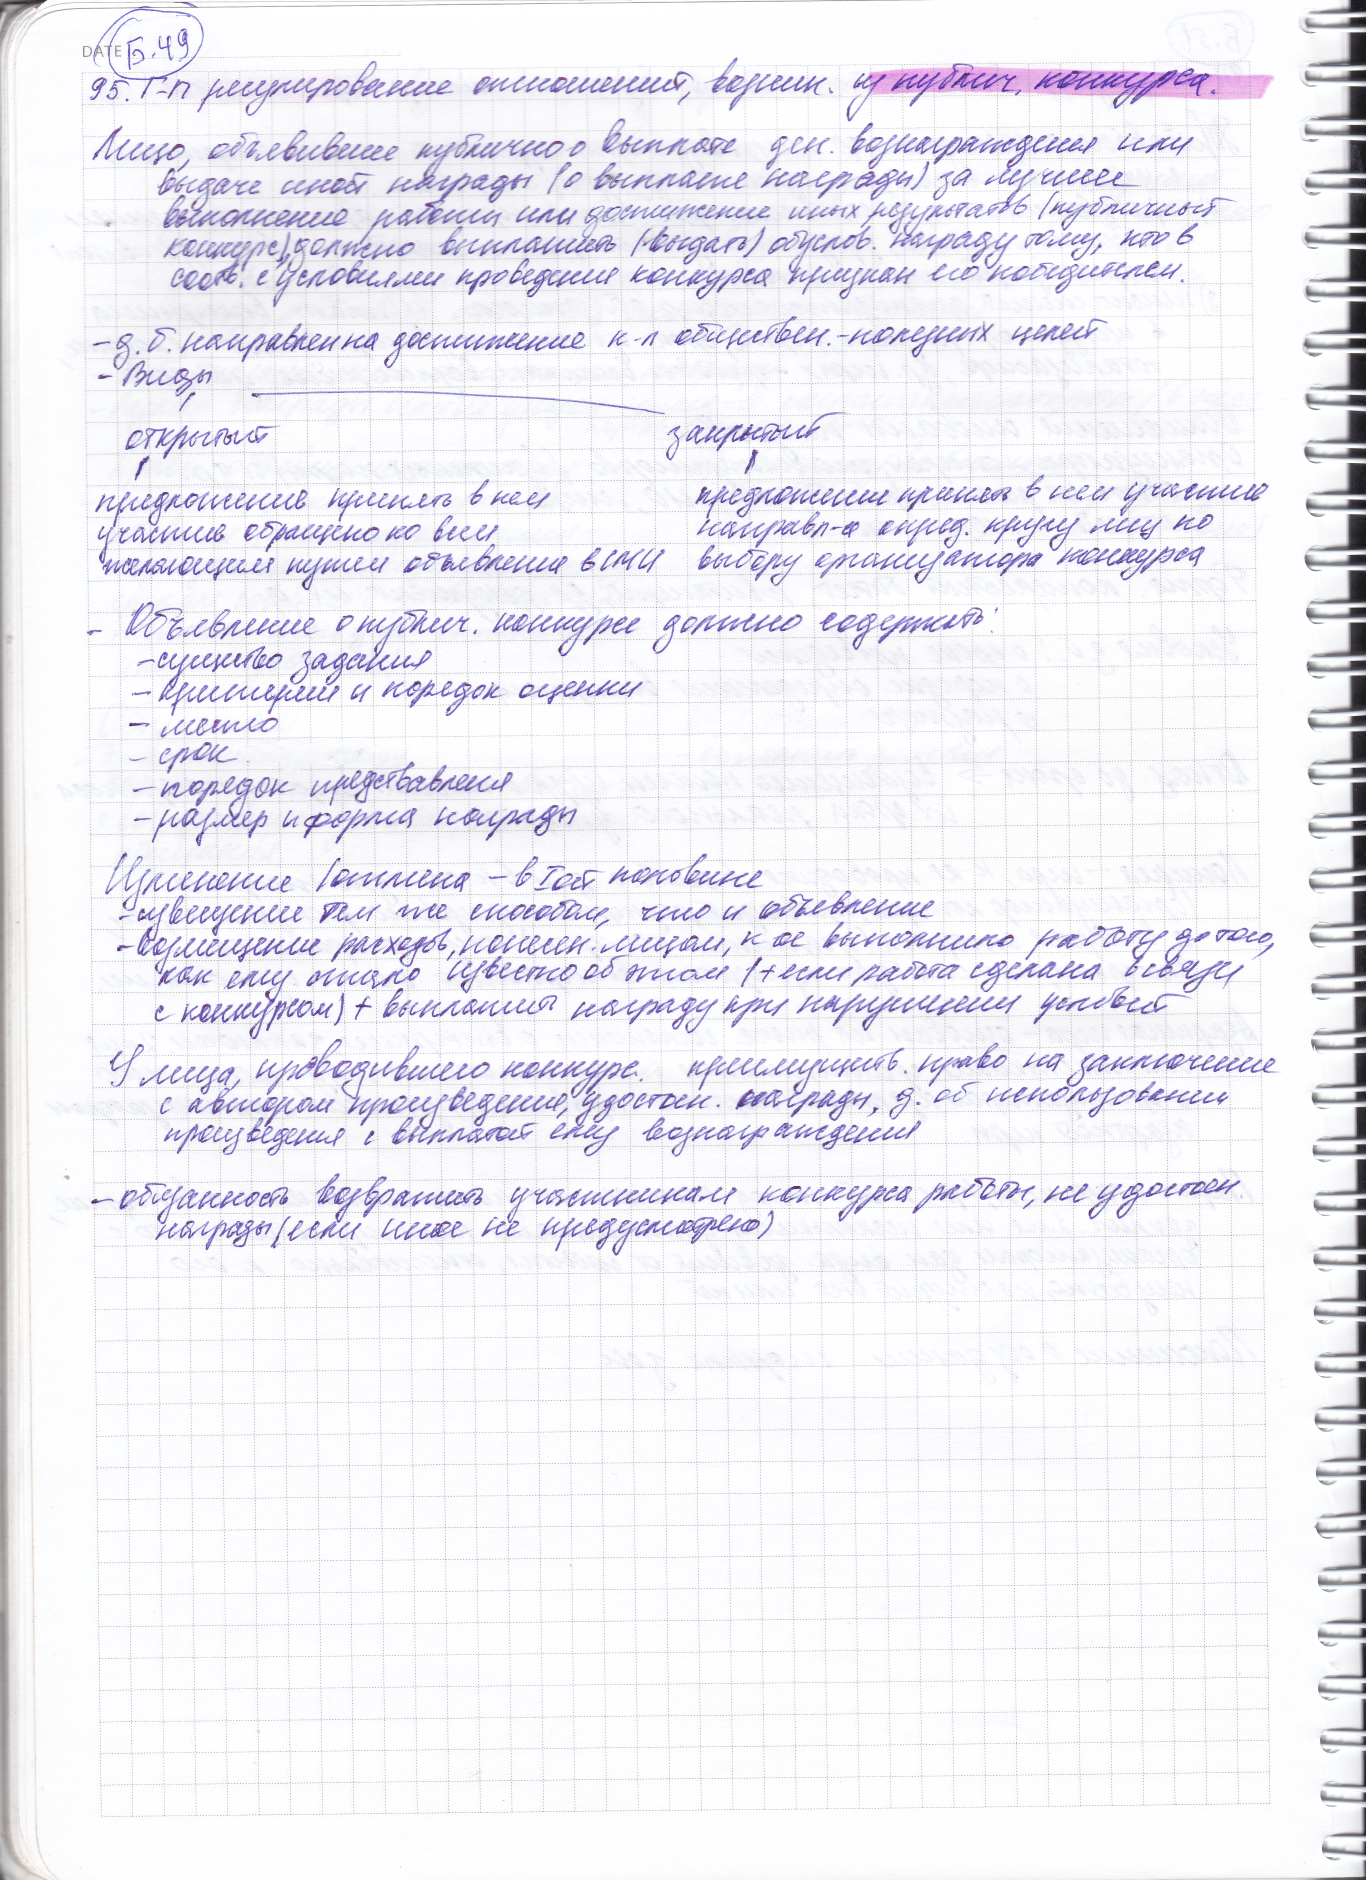 DATE Б.49
95. Г-П регулирование отношений, возник. из публич. конкурса.
Лицо, объявившее публично о выплате ден. вознаграждения или
выдаче иной награды (о выплате награды) за лучшее
выполнение работы или достижение иных результатов (публичный
конкурс), должно выплатить (выдать) обуслов. награду тому, кто в
соотв. с условиями проведения конкурса признан его победителем.
- д.б. направлен на достижение к-л обществен.-полезных целей
- Виды
открытый закрытый
предложение принять в нем
участие обращено ко всем
желающим путем объявления в СМИ
предложение принять в нем участие
направл-ся опред. кругу лиц по
выбору организатора конкурса
- Объявление о публич. конкурсе должно содержать:
- существо задания
- критерии и порядок оценки
- место
- срок
- порядок представления
- размер и форма награды
Изменение / отмена - в Iой половине
- извещение тем же способом, что и объявление
- возмещение расходов, понесен. лицом, к-ое выполнило работу до того,
как ему стало известно об этом (+ если работа сделана в связи
с конкурсом) + выплатить награду при нарушении условий
У лица, проводившего конкурс. преимуществ. право на заключение
с автором произведения, удостоен. награды, д. об использовании
произведения с выплатой ему вознаграждения
- обязанность возвратить участникам конкурса работы, не удостоен.
награды (если иное не предусмотрено)